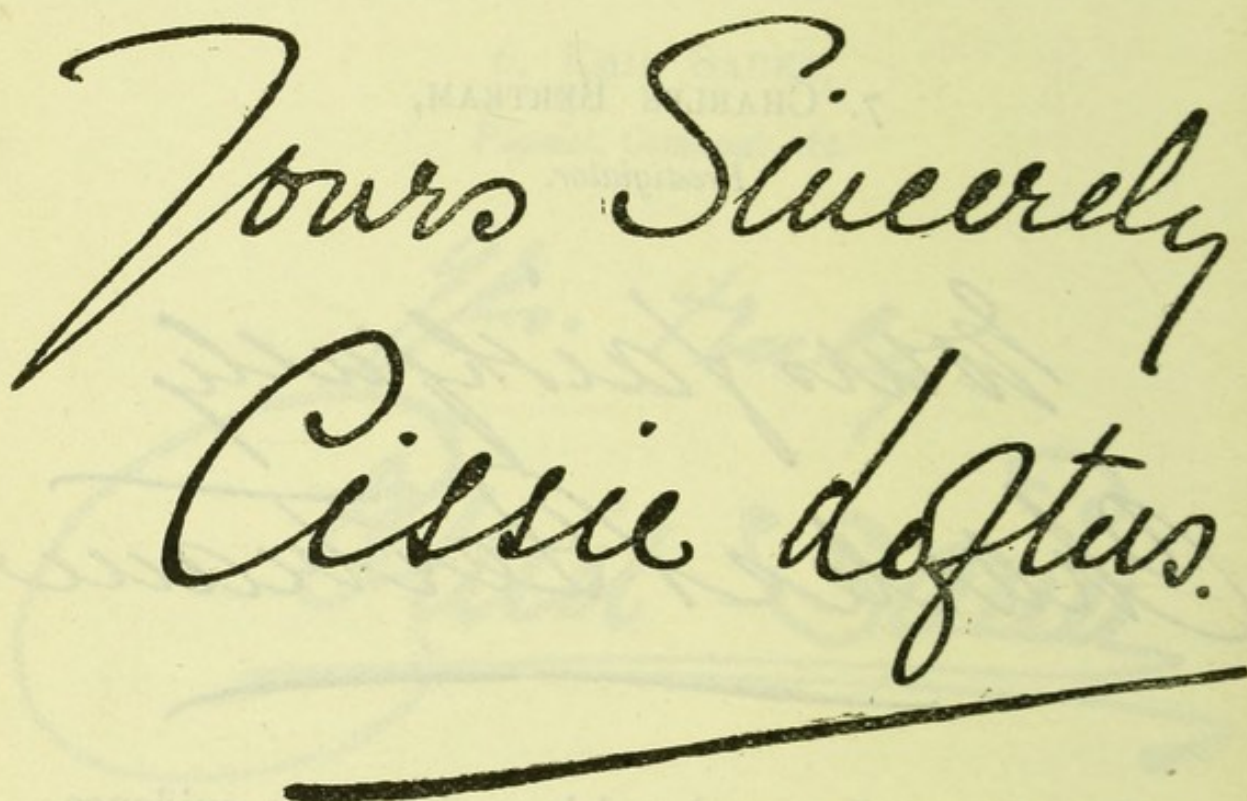 Yours Sincerely
Cissie Loftus.